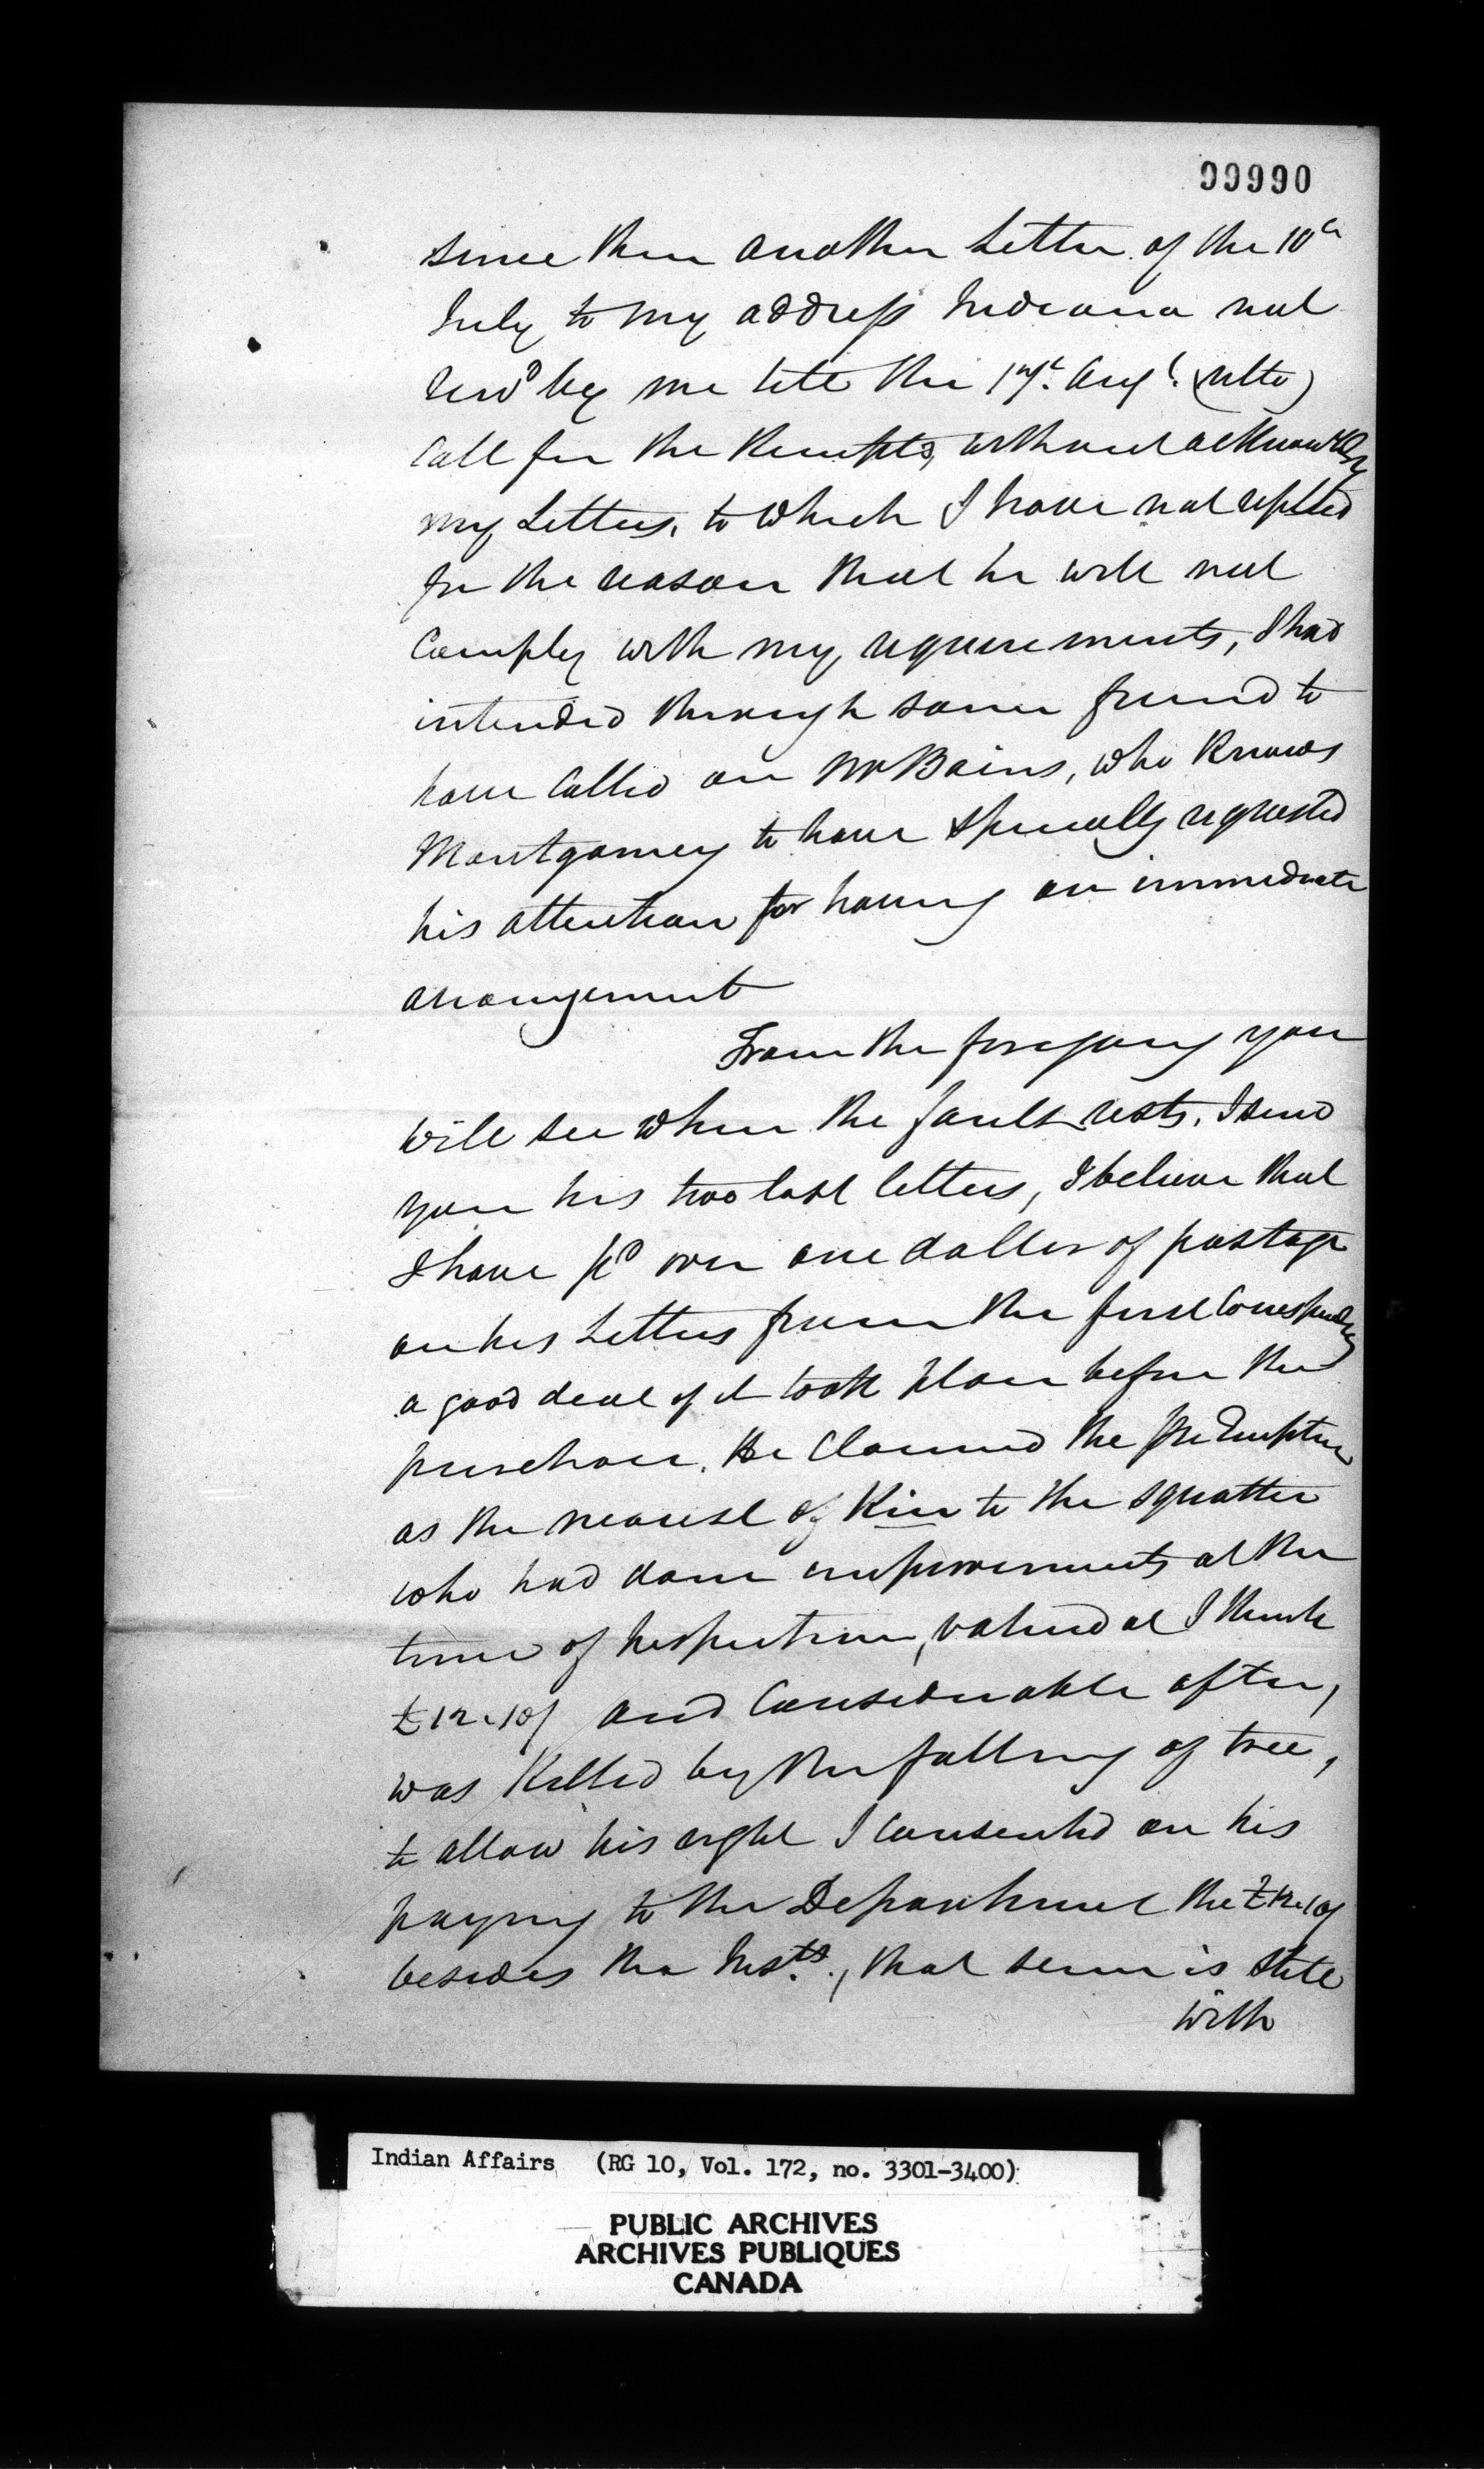 99990
since then another Letter of the 10th
July to my address Indiana not
recd by me till the 17th Augt. (ulto)
Call for the Receipts, without acknowledg
my Letters, to which I have not replied
for the reason that he will not
Comply with my requirements, I had
intended through some friend to
have Called on Mr Bains, who Knows
Montgomery to have specially requested
his attention for having an immediate
arrangement
From the foregoing you
will see where the fault rests. I send
you his two last letters, I believe that
I have pd over one dollar of postage
on his Letters from the first Corresponding
a good deal of it took place before the
purchase. He Claimed the preEmption
as the nearest of Kin to the squatter
who had done improvements at the
time of Inspection, valued at I think
£12.10/ and Considerable after,
was Killed by the falling of tree,
to allow his right I Consented on his
paying to the Department the £12.10/
besides the Insts., that sum is still
with
Indian Affairs (RG 10, Vol. 172, no. 3301-3400)
PUBLIC ARCHIVES
ARCHIVES PUBLIQUES
CANADA